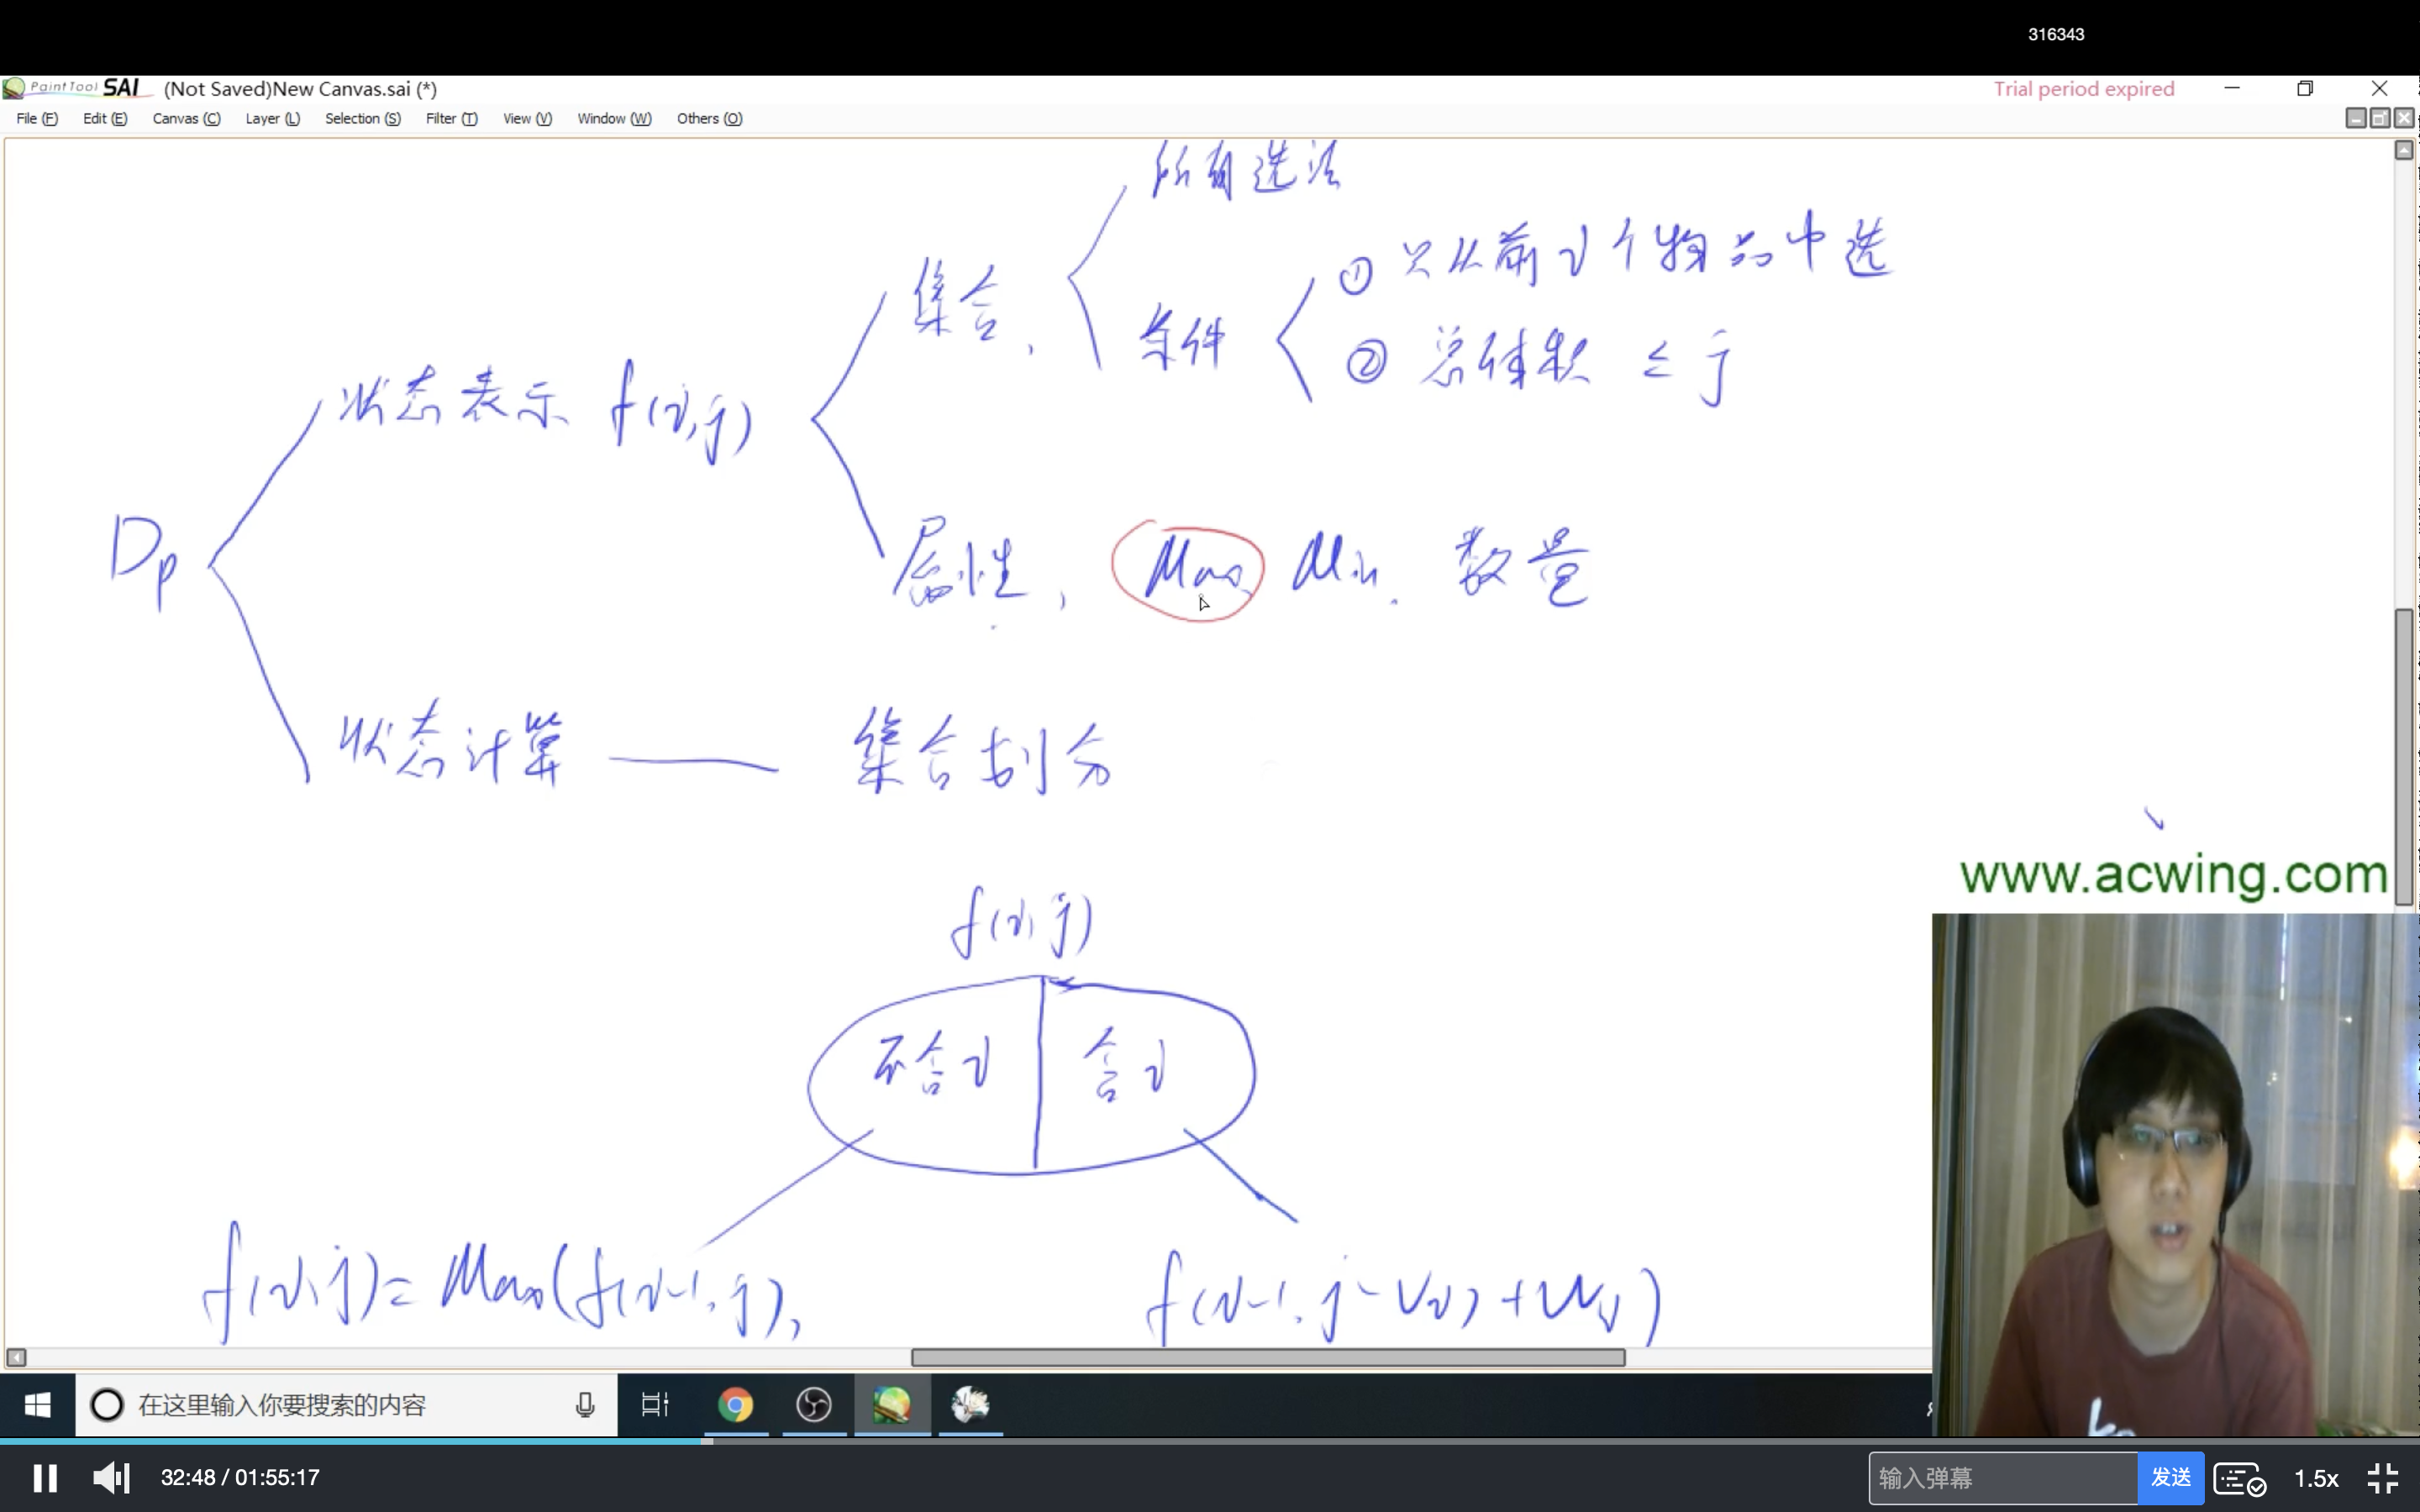 316343
PaintTool SAI (Not Saved)New Canvas.sai (*) Trial period expired
File (F) Edit (E) Canvas (C) Layer (L) Selection (S) Filter (T) View (V) Window (W) Others (O)
所有选法
集合, 条件 ① 只从前i个物品中选
② 总体积 ≤ j
状态表示 f(i,j)
Dp
属性, Max, Min, 数量
状态计算 集合划分
www.acwing.com
f(i,j)
不含i 含i
f(i,j) = Max(f(i-1,j), f(i-1,j-vi)+wi)
在这里输入你要搜索的内容
32:48 / 01:55:17 输入弹幕 发送 1.5x